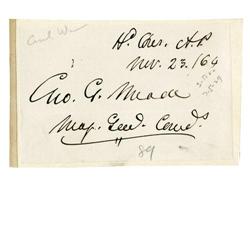 Civil War
Hd. Qrs. A.P.
Nov. 23. /64
Geo. G. Meade
Maj. Genl. Comdg.
89